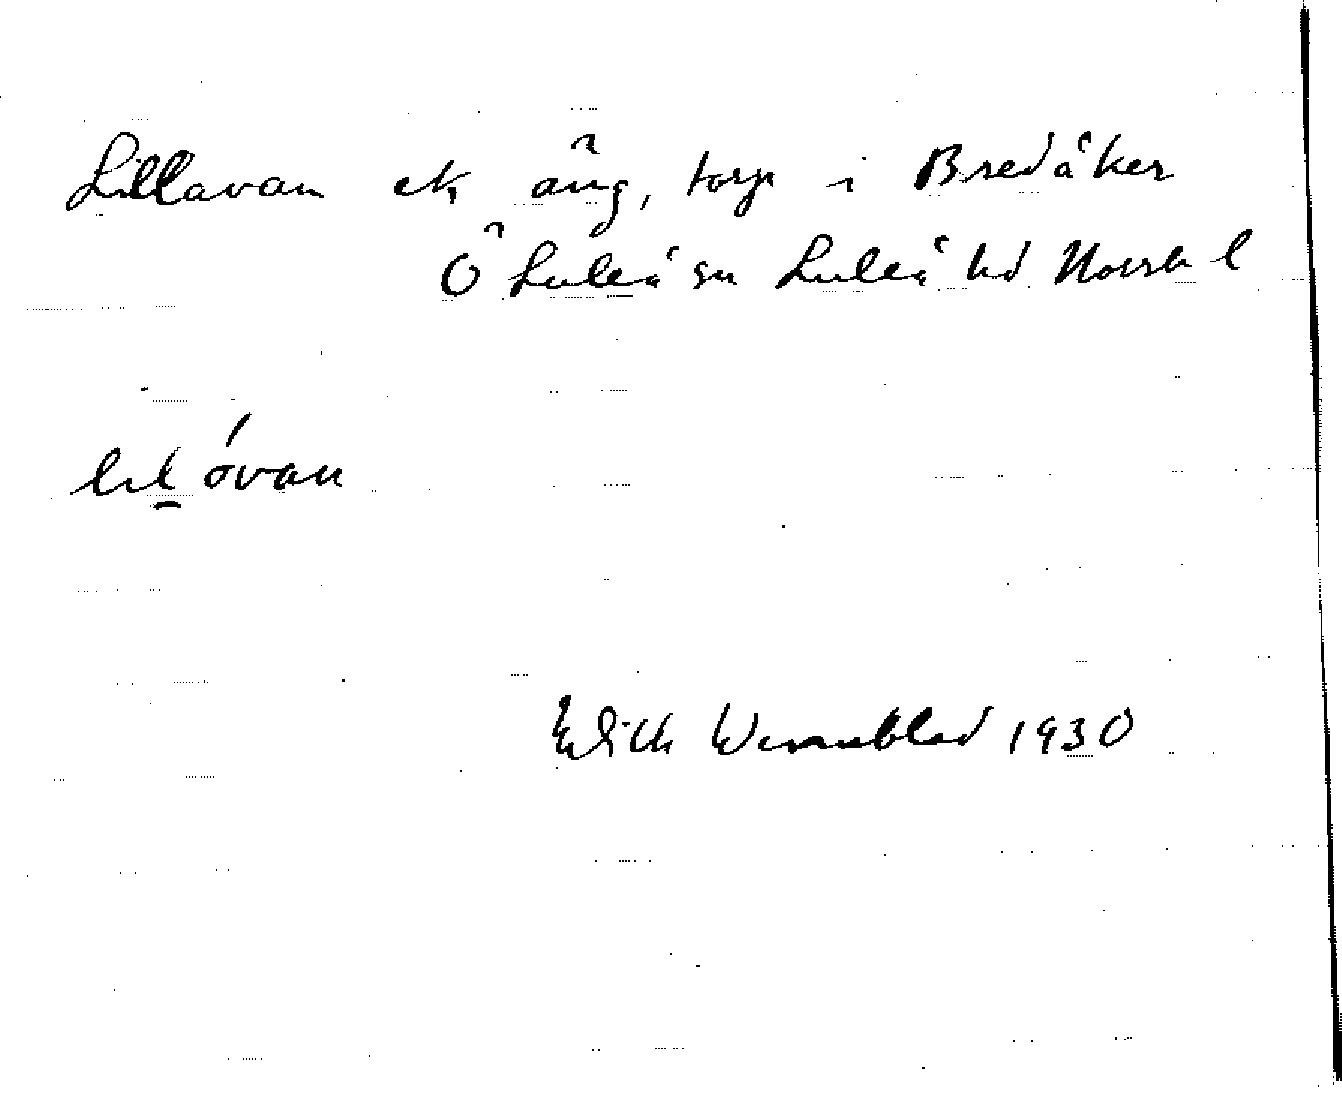 Lillavan ek äng, torp i Bredåker
Ö Luleå sn Luleå hd Norrb l
lil óvan
Edith Wennblad 1930